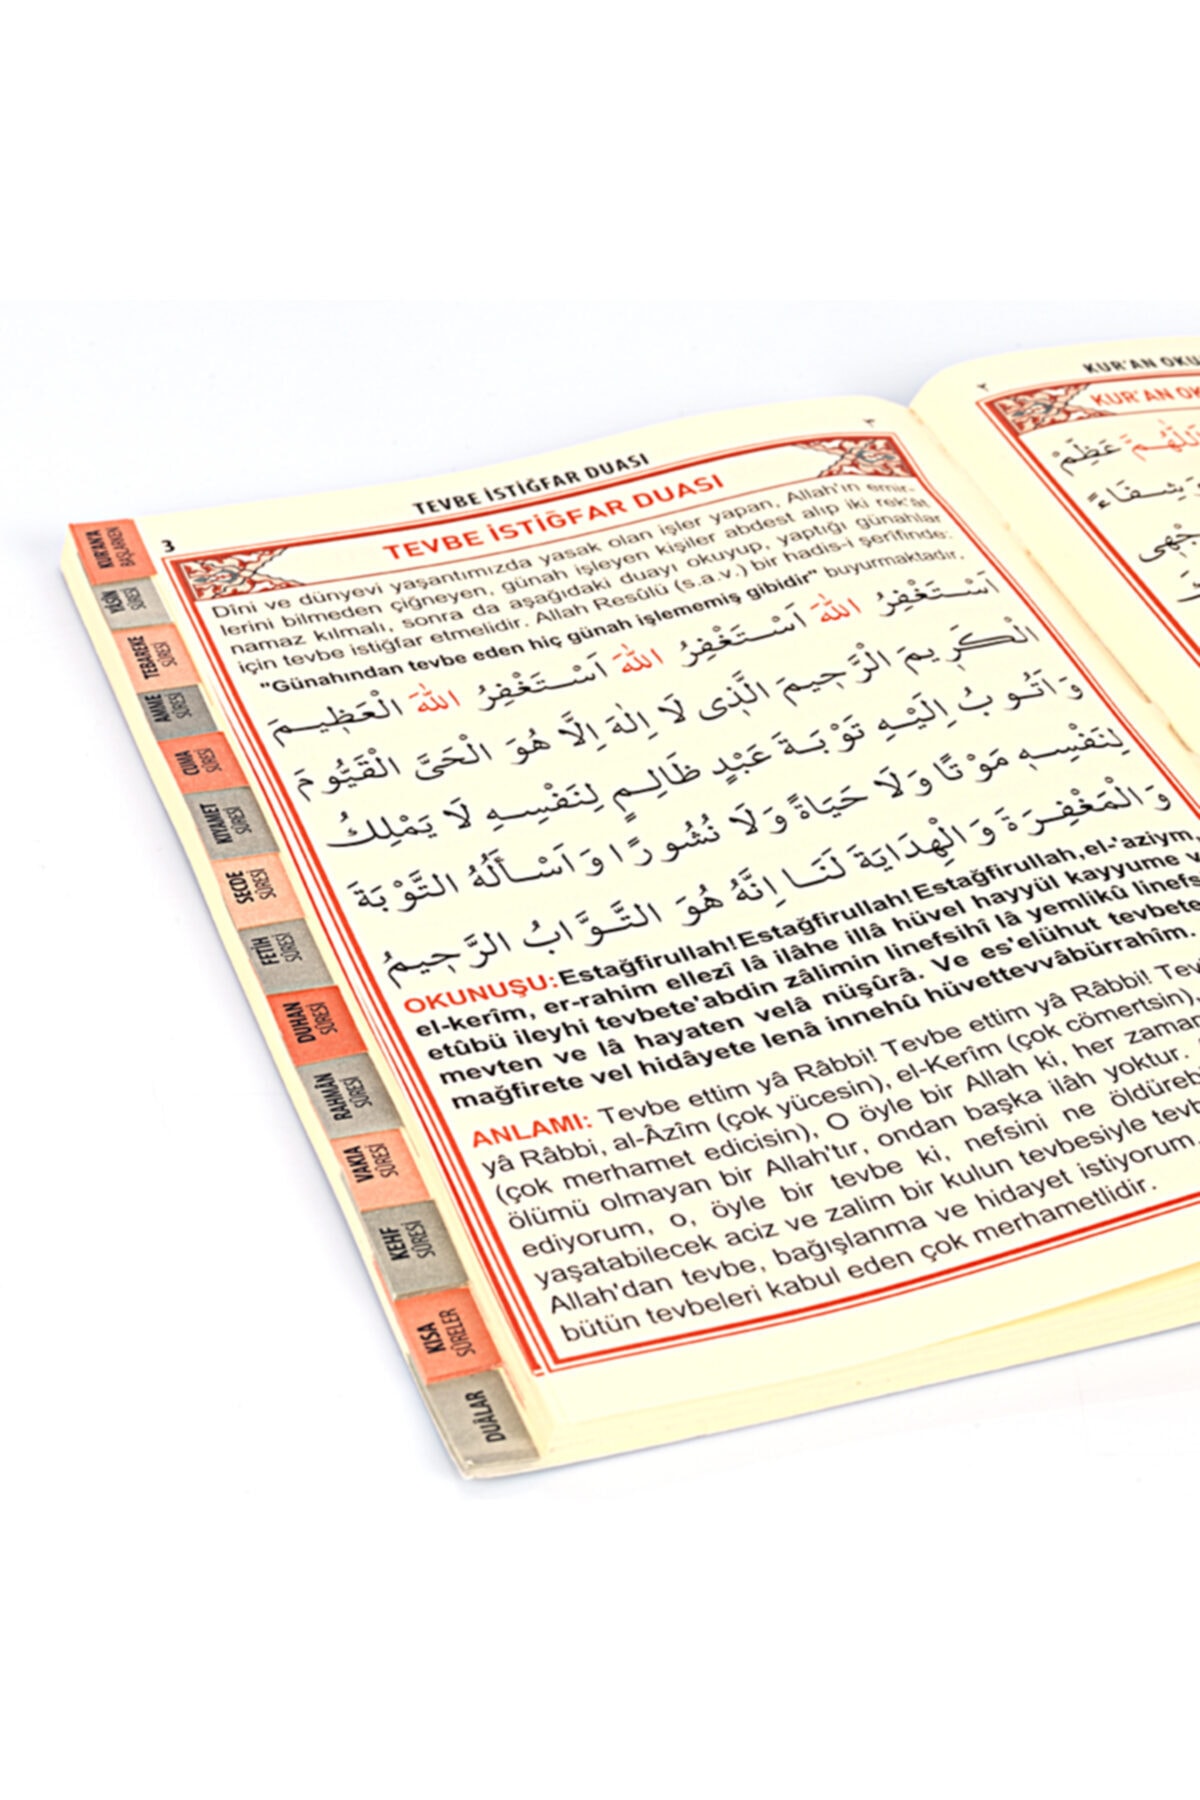 TEVBE İSTİĞFAR DUASI
٣
3
TEVBE İSTİĞFAR DUASI
Dîni ve dünyevi yaşantımızda yasak olan işler yapan, Allah'ın emir-
lerini bilmeden çiğneyen, günah işleyen kişiler abdest alıp iki rek'ât
namaz kılmalı, sonra da aşağıdaki duayı okuyup, yaptığı günahlar
için tevbe istiğfar etmelidir. Allah Resûlü (s.a.v.) bir hadis-i şerîfinde:
"Günahından tevbe eden hiç günah işlememiş gibidir" buyurmaktadır.
اَسْتَغْفِرُ اللهَ اَسْتَغْفِرُ اللهَ اَسْتَغْفِرُ اللهَ الْعَظِيمَ
الْكَرِيمَ الْرَّحِيمَ الَّذِى لَا اِلٰهَ اِلَّا هُوَ الْحَىَّ الْقَيُّومَ
وَاَتُوبُ اِلَيْهِ تَوْبَةَ عَبْدٍ ظَالِمٍ لِنَفْسِهِ لَا يَمْلِكُ
لِنَفْسِهِ مَوْتًا وَلَا حَيَاةً وَلَا نُشُورًا وَاَسْأَلُهُ التَّوْبَةَ
وَالْمَغْفِرَةَ وَالْهِدَايَةَ لَنَا اِنَّهُ هُوَ التَّوَّابُ الرَّحِيمُ
OKUNUŞU: Estağfirullah! Estağfirullah! Estağfirullah, el-'aziym,
el-kerîm, er-rahim ellezî lâ ilâhe illâ hüvel hayyül kayyume v
etûbü ileyhi tevbete'abdin zâlimin linefsihî lâ yemlikû linefs
mevten ve lâ hayaten velâ nüşûrâ. Ve es'elühut tevbete
mağfirete vel hidâyete lenâ innehû hüvettevvâbürrahîm.
ANLAMI: Tevbe ettim yâ Râbbi! Tevbe ettim yâ Râbbi! Tev
yâ Râbbi, al-Âzîm (çok yücesin), el-Kerîm (çok cömertsin),
(çok merhamet edicisin), O öyle bir Allah ki, her zaman
ölümü olmayan bir Allah'tır, ondan başka ilâh yoktur.
ediyorum, o, öyle bir tevbe ki, nefsini ne öldürebi
yaşatabilecek aciz ve zalim bir kulun tevbesiyle tevb
Allah'dan tevbe, bağışlanma ve hidayet istiyorum.
bütün tevbeleri kabul eden çok merhametlidir.
KUR'AN'A BAŞLARKEN
YÂSİN SÛRESİ
TEBAREKE SÛRESİ
AMME SÛRESİ
CUMA SÛRESİ
KIYAMET SÛRESİ
SECDE SÛRESİ
FETİH SÛRESİ
DUHAN SÛRESİ
RAHMÂN SÛRESİ
VAKIA SÛRESİ
KEHF SÛRESİ
KISA SÛRELER
DUÂLAR
٢
KUR'AN OKU
KUR'AN OK
عَظِّمْ